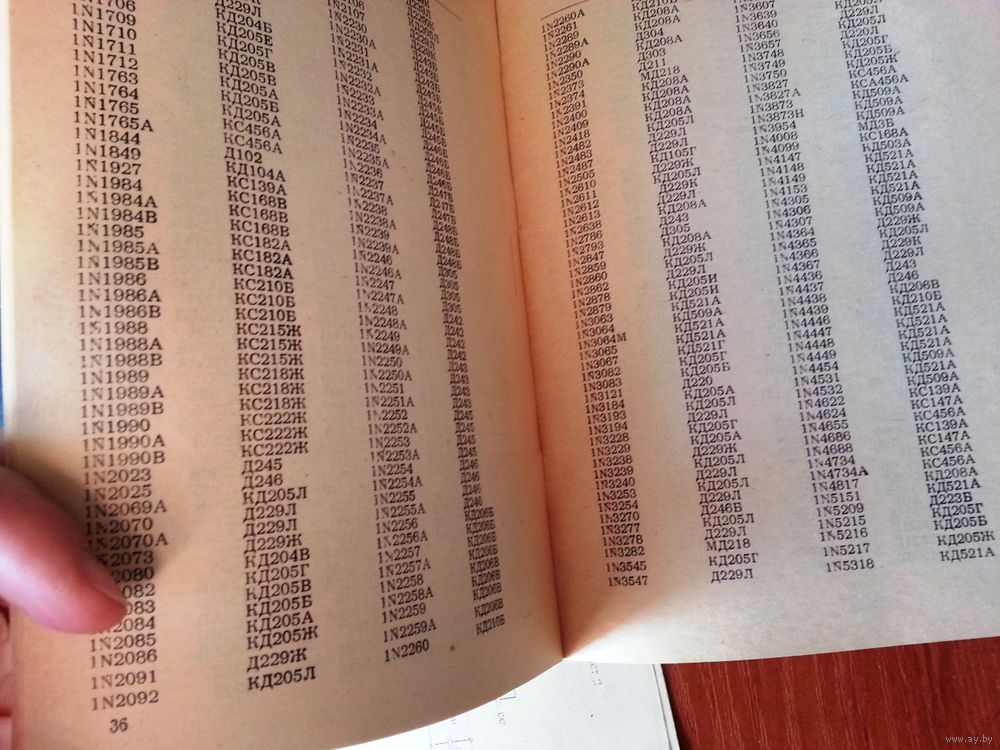 1N1706
1N1710
1N1711
1N1712
1N1763
1N1764
1N1765
1N1765A
1N1844
1N1849
1N1927
1N1984
1N1984A
1N1984B
1N1985
1N1985A
1N1985B
1N1986
1N1986A
1N1986B
1N1988
1N1988A
1N1988B
1N1989
1N1989A
1N1989B
1N1990
1N1990A
1N1990B
1N2023
1N2025
1N2069A
1N2070
1N2070A
2073
2080
2084
1N2085
1N2086
1N2091
1N2092
Д229Л
КД204Б
КД205Е
КД205Г
КД205В
КД205В
КД205А
КД205Б
КД205А
КС456А
КС456А
Д102
КД104А
КС139А
КС168В
КС168В
КС168В
КС182А
КС182А
КС182А
КС210Б
КС210Б
КС210Б
КС215Ж
КС215Ж
КС215Ж
КС218Ж
КС218Ж
КС218Ж
КС222Ж
КС222Ж
КС222Ж
Д245
Д246
КД205Л
Д229Л
Д229Л
Д229Ж
КД204В
КД205Г
КД205В
КД205Б
КД205А
КД205Ж
Д229Ж
КД205Л
1N2230
1N2230A
1N2231
1N2231A
1N2232
1N2232A
1N2233
1N2233A
1N2234
1N2234A
1N2235
1N2235A
1N2236
1N2237
1N2237A
1N2238
1N2238A
1N2239
1N2239A
1N2246
1N2246A
1N2247
1N2247A
1N2248
1N2248A
1N2249
1N2249A
1N2250
1N2250A
1N2251
1N2251A
1N2252
1N2252A
1N2253
1N2253A
1N2254
1N2254A
1N2255
1N2255A
1N2256
1N2256A
1N2257
1N2257A
1N2258
1N2258A
1N2259
1N2259A
1N2260
Д305
Д305
Д305
Д242
Д242
Д242
Д243
Д243
Д243
Д243
Д245
Д245
Д245
Д246
Д246
Д246
Д246
КД206Б
КД206Б
КД206Б
КД206Б
КД206В
КД206В
КД206В
КД206В
КД210Б
36
1N2260A
1N2261
1N2289
1N2289A
1N2290
1N2290A
1N2350
1N2373
1N2374
1N2391
1N2400
1N2409
1N2418
1N2482
1N2483
1N2487
1N2505
1N2610
1N2611
1N2612
1N2613
1N2638
1N2786
1N2793
1N2847
1N2859
1N2860
1N2862
1N2878
1N2879
1N3063
1N3064
1N3064M
1N3065
1N3067
1N3082
1N3083
1N3121
1N3184
1N3193
1N3194
1N3228
1N3229
1N3238
1N3239
1N3240
1N3253
1N3254
1N3270
1N3277
1N3278
1N3282
1N3545
1N3547
КД208А
КД208А
Д304
КД208А
Д303
Д211
МД218
КД208А
КД208А
КД208А
КД208А
КД205Л
Д229Л
КД105Г
Д229Ж
КД205Л
Д229К
Д229Л
КД208А
Д243
Д305
КД208А
Д229Ж
КД205Л
Д229Л
КД205И
КД205И
КД521А
КД509А
КД521А
КД521А
КД521Г
КД205Г
КД205Б
Д220
КД205А
КД205Л
Д229Л
КД205Г
КД205А
Д229Ж
КД205Л
Д229Л
КД205Л
Д229Л
Д246Б
КД205Л
Д229Л
МД218
КД205Г
Д229Л
1N3607
1N3639
1N3640
1N3656
1N3657
1N3748
1N3749
1N3759
1N3827
1N3827A
1N3873
1N3873H
1N3954
1N4008
1N4099
1N4147
1N4148
1N4149
1N4153
1N4305
1N4306
1N4307
1N4364
1N4365
1N4366
1N4367
1N4436
1N4437
1N4438
1N4439
1N4446
1N4447
1N4448
1N4449
1N4454
1N4531
1N4532
1N4622
1N4624
1N4655
1N4686
1N4688
1N4734
1N4734A
1N4817
1N5151
1N5209
1N5215
1N5216
1N5217
1N5318
Д229Л
КД205Л
Д220Л
КД205Г
КД205Б
КД205Ж
КС456А
КСА456А
КД509А
КД509А
КД509А
МД3Б
КС168А
КД503А
КД521А
КД521А
КД521А
КД521А
КД509А
КД509А
Д229Ж
КД205Л
Д229К
Д229Л
Д243
Д246
КД206В
КД210Б
КД521А
КД521А
КД521А
КД521А
КД509А
КД521А
КД509А
КС139А
КС147А
КС456А
КС139А
КС147А
КС456А
КС456А
КД208А
КД521А
Д223Б
КД205Г
КД205Б
КД205Ж
КД521А
www.ay.by